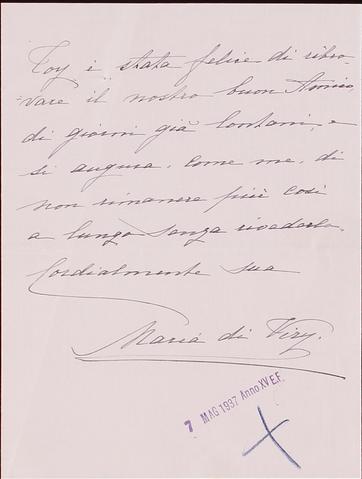 Toy è stata felice di ritro-
vare il nostro buon Amico
di giorni già lontani, e
si augura, come me, di
non rimanere più così
a lungo senza rivederlo.
Cordialmente sua
Maria di Viry.
7 MAG 1937 Anno XV E.F.